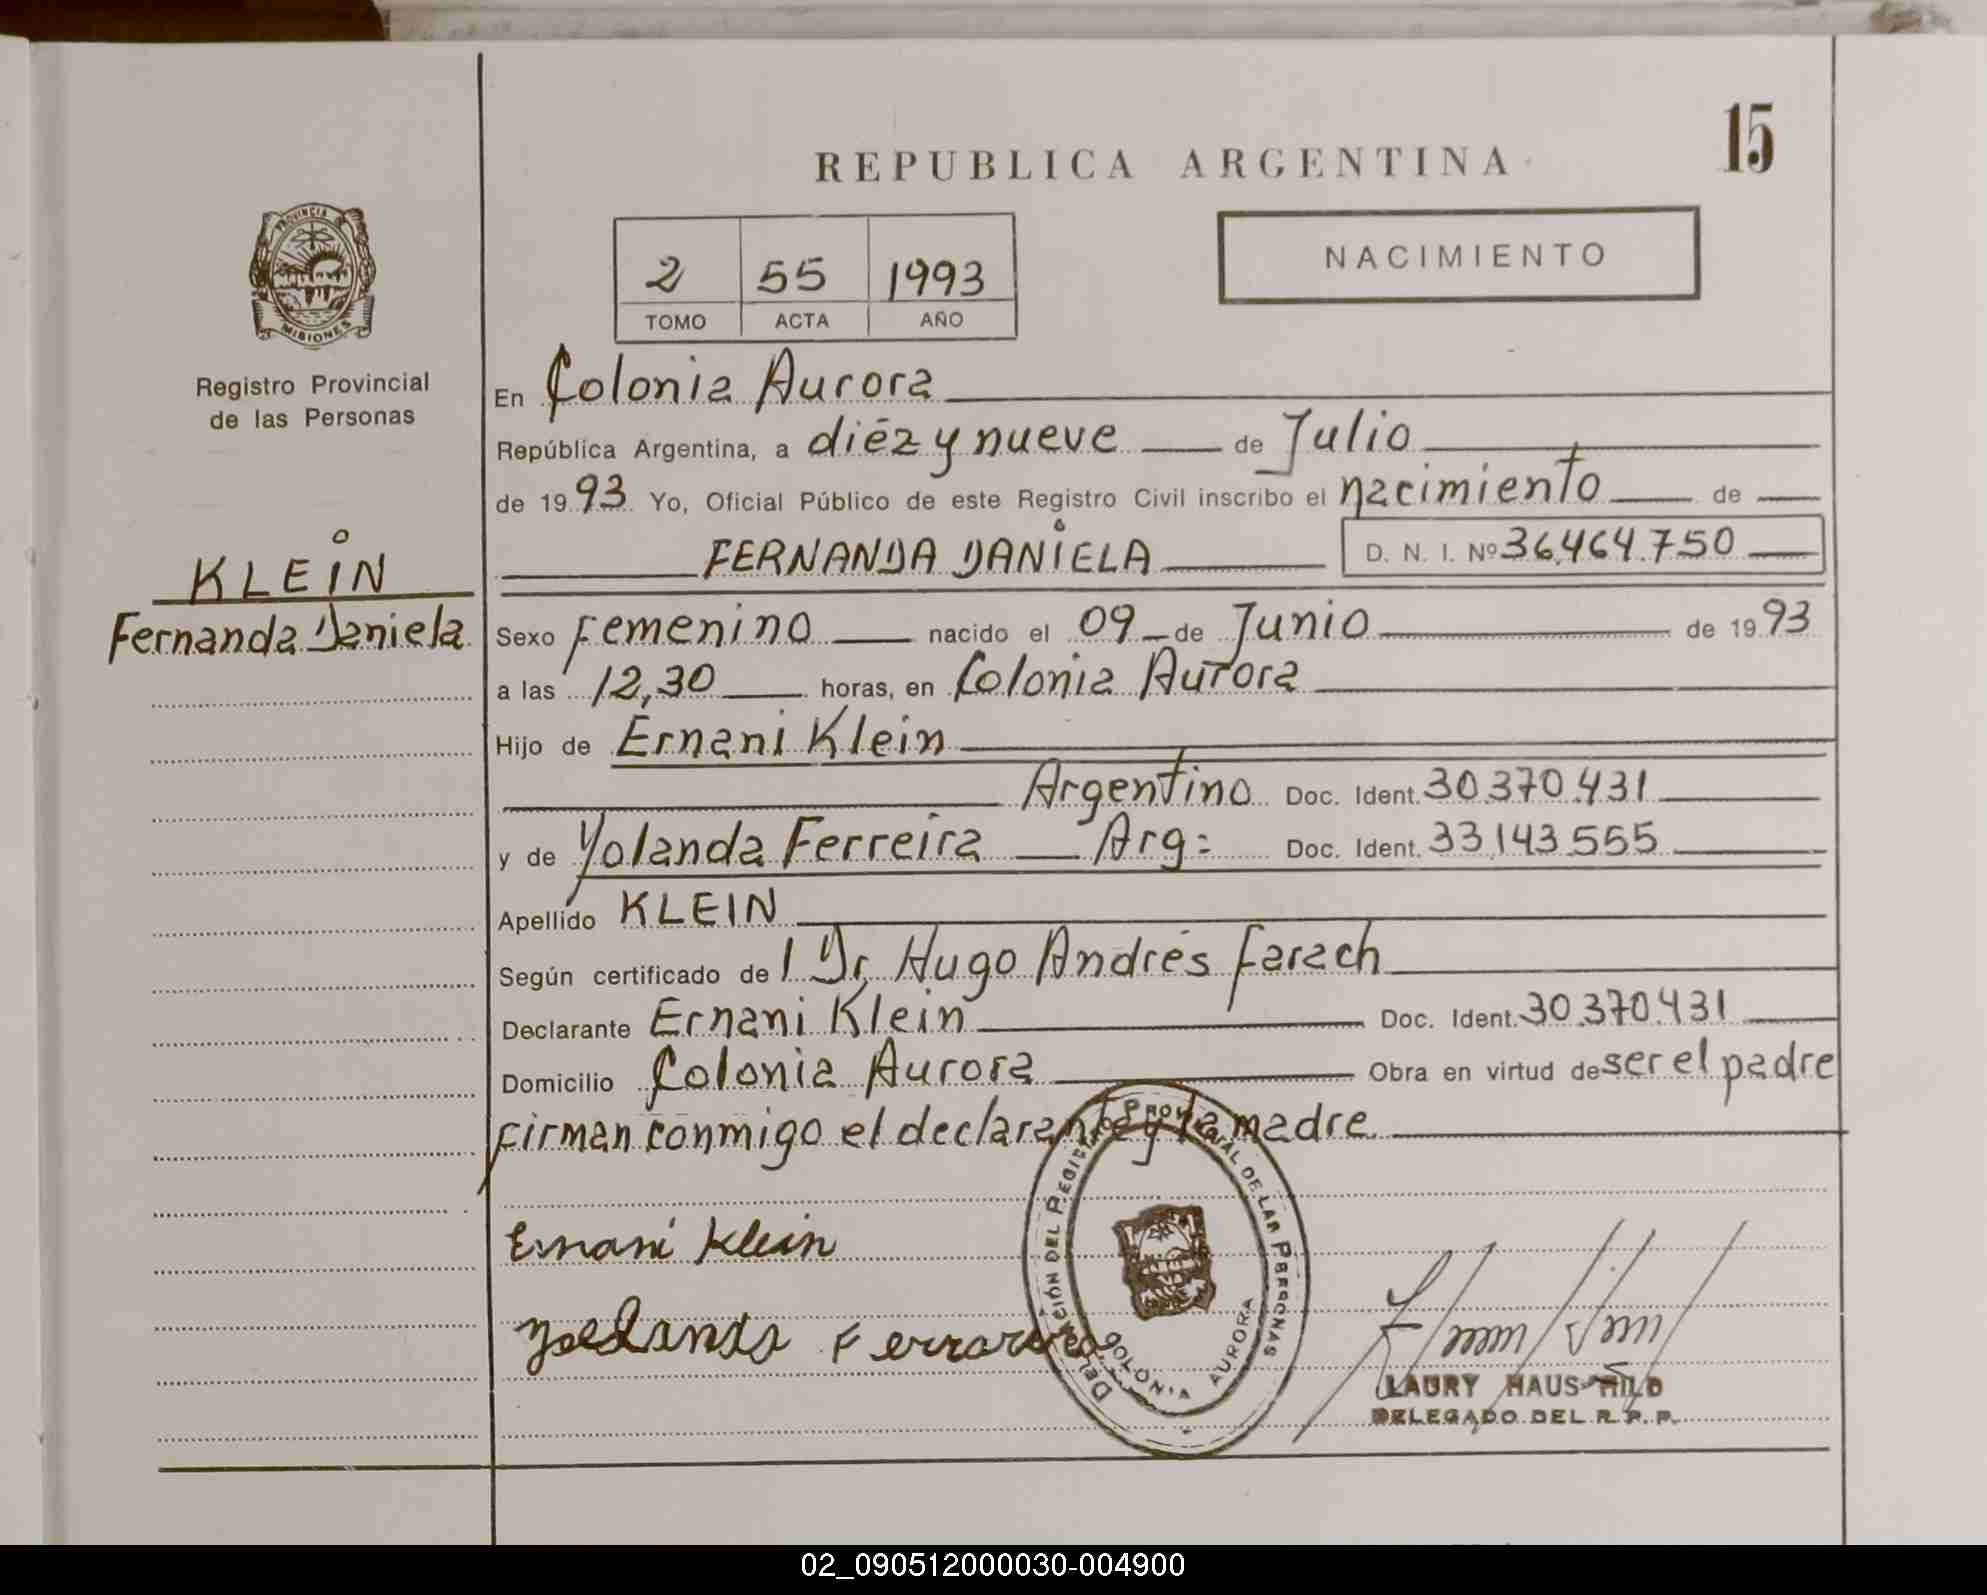 15
REPUBLICA ARGENTINA
NACIMIENTO
2 55 1993
TOMO ACTA AÑO
PROVINCIA
MISIONES
Registro Provincial
de las Personas
KLEIN
Fernanda Daniela
En Colonia Aurora
República Argentina, a diéz y nueve de Julio
de 1993 Yo, Oficial Público de este Registro Civil inscribo el nacimiento de
FERNANDA DANIELA D. N. I. Nº 36.464.750
Sexo Femenino nacido el 09 de Junio de 1993
a las 12,30 horas, en Colonia Aurora
Hijo de Ernani Klein
Argentino Doc. Ident. 30.370.431
y de Yolanda Ferreira Arg: Doc. Ident. 33.143.555
Apellido KLEIN
Según certificado de l Dr. Hugo Andrés Farach
Declarante Ernani Klein Doc. Ident. 30.370.431
Domicilio Colonia Aurora Obra en virtud de ser el padre
firman conmigo el declarante y la madre
Ernani Klein
Ferrareira
DELEGACIÓN DEL REGISTRO PROVINCIAL DE LAS PERSONAS
COLONIA AURORA
LAURY HAUS HILD
DELEGADO DEL R. P. P.
02_090512000030-004900